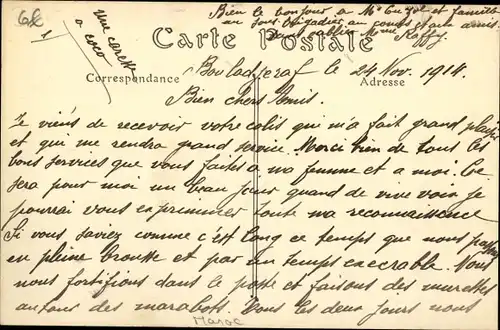 Bien le bonjour a Mr et famille
au Sous Brigadier au comts et aux amis.
Sans oublier Mme Raffy.
68
1
une caresse
a coco
Carte Postale
Correspondance
Adresse
Bouladjeraf le 24 Nov. 1914.
Bien chers Amis.
Je viens de recevoir votre colis qui m'a fait grand plaisir
et qui me rendra grand service. Merci bien de tous les
bons services que vous faites a ma femme et a moi. Ce
sera pour moi un beau jour quand de vive voix je
pourrai vous exprimer toute ma reconnaissance
Si vous saviez comme c'est long ce temps que nous passons
en pleine brousse et par un temps execrable. Nous
nous fortifions dans le poste et faisons des murettes
autour des marabouts. Tous les deux jours nous
Maroc